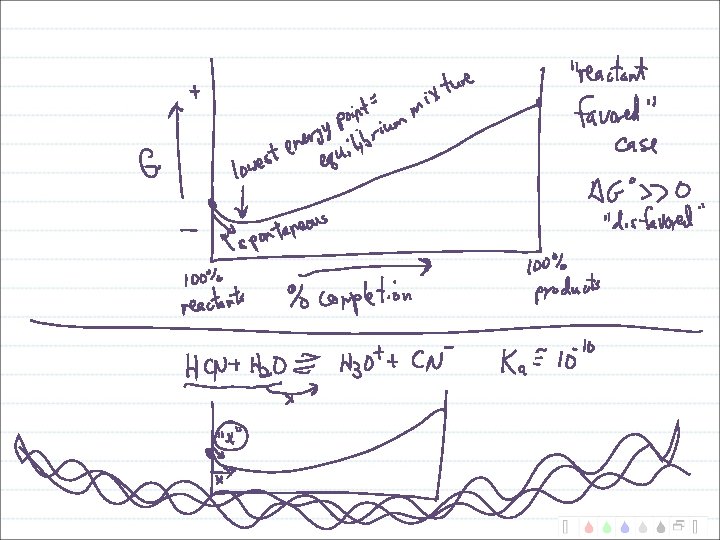 +
G
−
lowest energy point =
equilibrium mixture
spontaneous
"reactant
favored"
case
ΔG° >> 0
"disfavored"
100%
reactants
% completion
100%
products
HCN + H₂O ⇌ H₃O⁺ + CN⁻ Kₐ ≅ 10⁻¹⁰
x
"x"
x